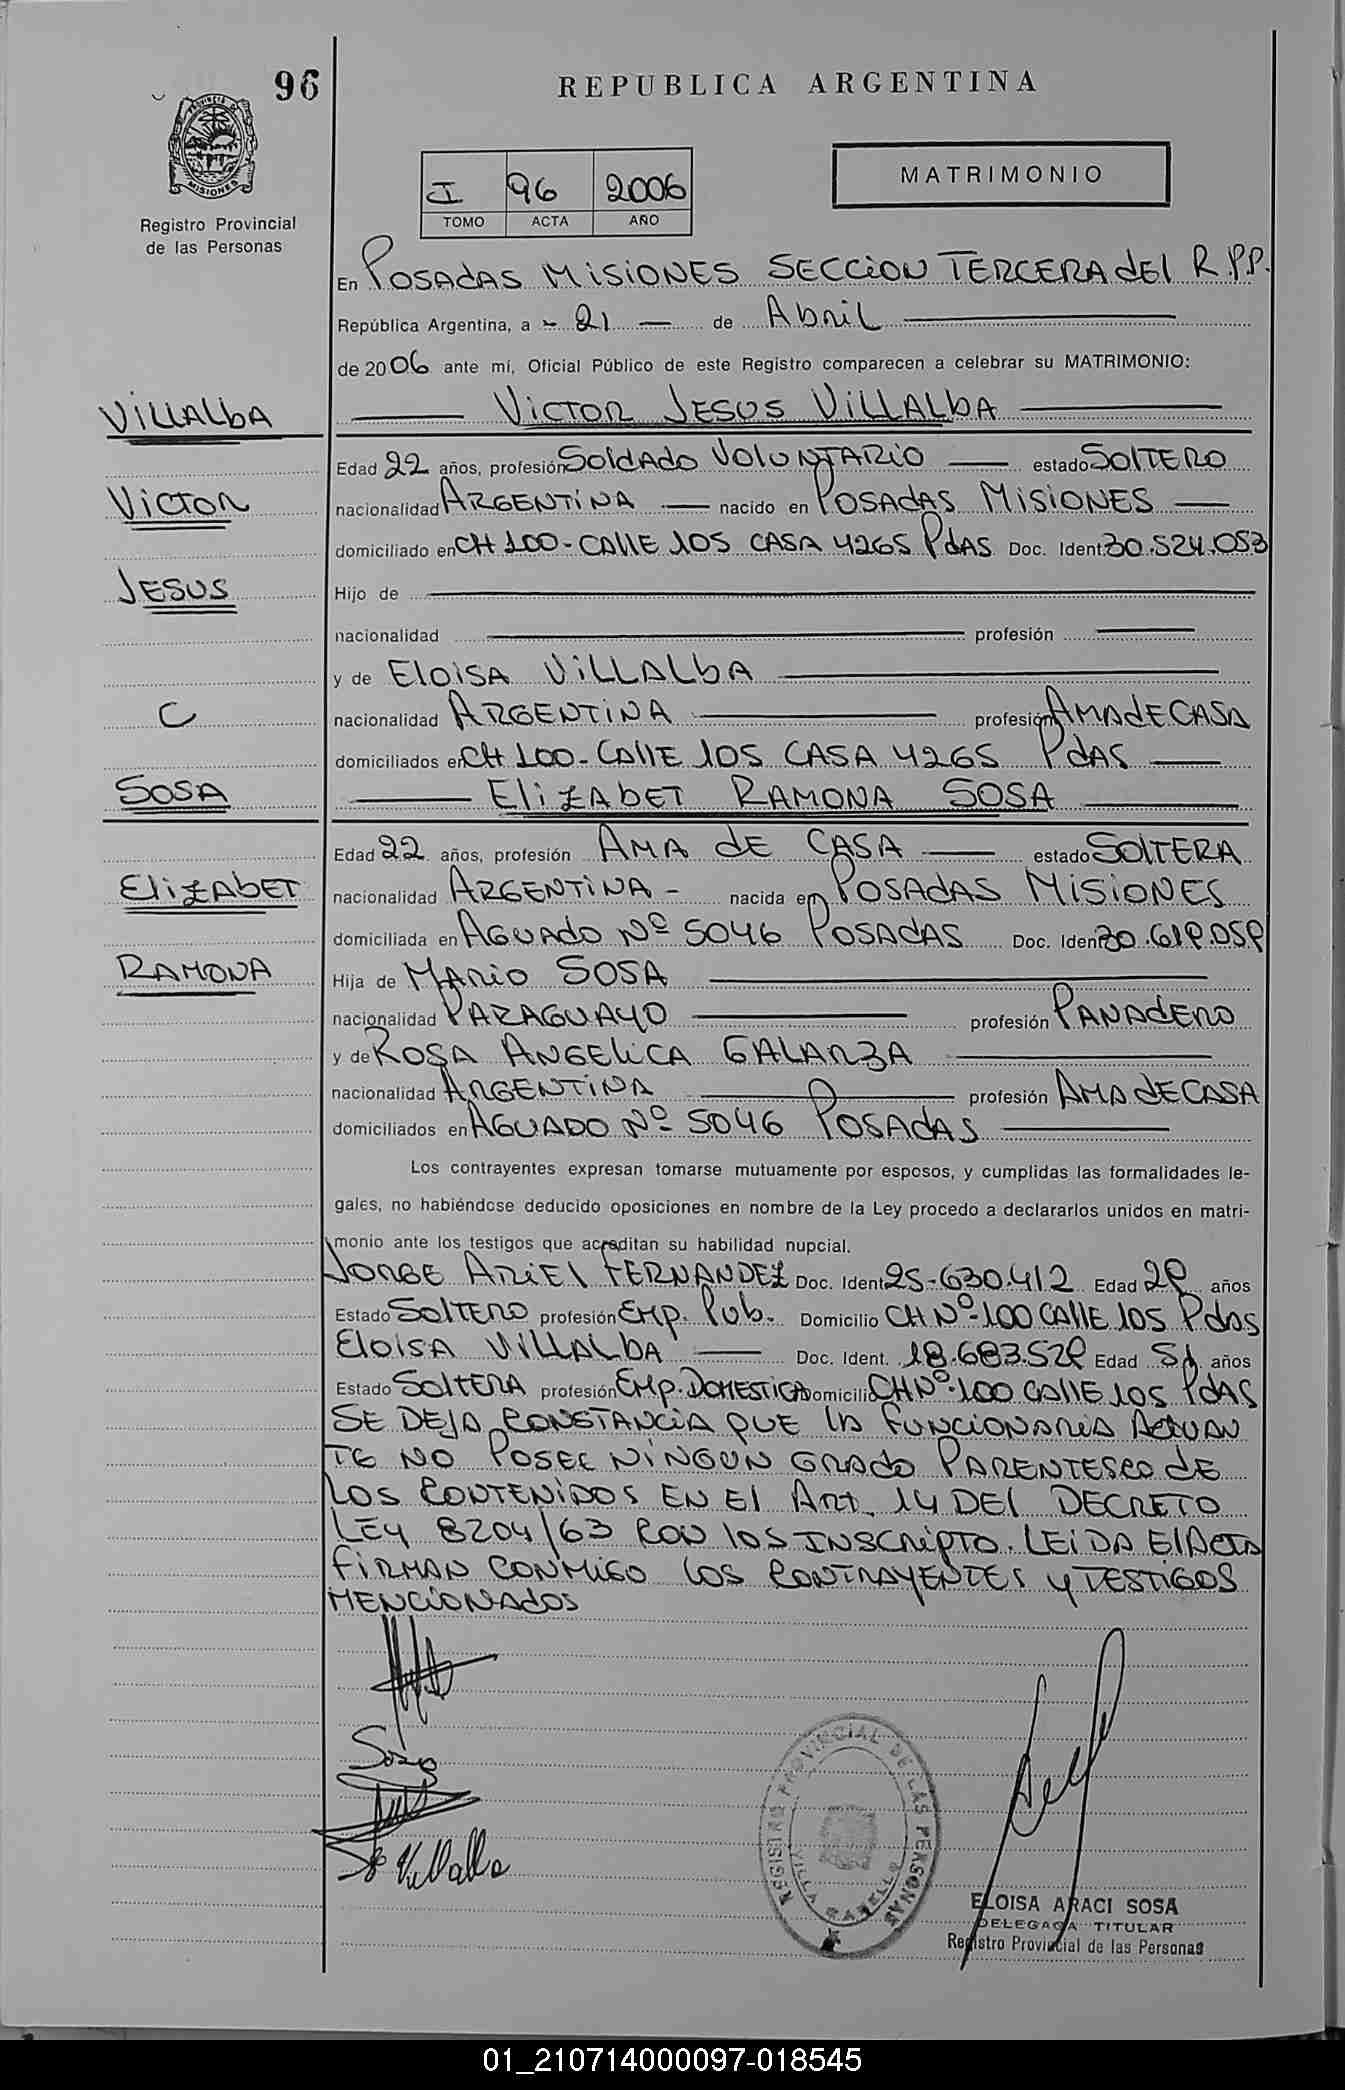 96
REPUBLICA ARGENTINA
PROVINCIA DE MISIONES
Registro Provincial
de las Personas
I 96 2006
TOMO ACTA AÑO
MATRIMONIO
En POSAdAS MISIONES SECCION TERCERA dEl R.P.P.
República Argentina, a 21 de Abril
de 2006 ante mí, Oficial Público de este Registro comparecen a celebrar su MATRIMONIO:
VILLALbA
VICTOR JESUS VILLALbA
Edad 22 años, profesión SOLdAdO VOLUNTARIO estado SOLTERO
VICTOR
nacionalidad ARGENTINA nacido en POSAdAS MISIONES
domiciliado en CH 100 - CALLE 105 CASA 4265 PdAS Doc. Ident. 30.524.053
JESUS
Hijo de
nacionalidad profesión
y de ELOISA VILLALbA
C
nacionalidad ARGENTINA profesión AMA dE CASA
domiciliados en CH 100 - CALLE 105 CASA 4265 PdAS
SOSA
ELIZAbET RAMONA SOSA
Edad 22 años, profesión AMA dE CASA estado SOLTERA
ELIZAbET
nacionalidad ARGENTINA - nacida en POSAdAS MISIONES
domiciliada en AGUADO Nº 5046 POSADAS Doc. Ident. 30.619.059
RAMONA
Hija de MARIO SOSA
nacionalidad PARAGUAYO profesión PANAdERO
y de ROSA ANGELICA GALARZA
nacionalidad ARGENTINA profesión AMA dE CASA
domiciliados en AGUADO Nº 5046 POSAdAS
Los contrayentes expresan tomarse mutuamente por esposos, y cumplidas las formalidades le-
gales, no habiéndose deducido oposiciones en nombre de la Ley procedo a declararlos unidos en matri-
monio ante los testigos que acreditan su habilidad nupcial.
JORGE ARIEL FERNANDEZ Doc. Ident. 25-630.412 Edad 29 años
Estado SOLTERO profesión EMP. Pub. Domicilio CH Nº-100 CALLE 105 PdAS
ELOISA VILLALbA Doc. Ident. 18.683.529 Edad 51 años
Estado SOLTERA profesión EMP. DOMESTICA Domicilio CH Nº-100 CALLE 105 PdAS
SE DEJA CONSTANCIA QUE LA FUNCIONARIA ACTUAN
TE NO POSEE NINGUN GRAdO PARENTESCO dE
LOS CONTENIDOS EN El Art. 14 DEl DECRETO
LEY 8204/63 CON lOS INSCRIPTO. LEIDA El ACTA
FIRMAN CONMIGO LOS CONTRAYENTES Y TESTIGOS
MENCIONAdOS
Sosa
Villalba
REGISTRO PROVINCIAL DE LAS PERSONAS
VILLA CABELLO
ELOISA ARACI SOSA
DELEGADA TITULAR
Registro Provincial de las Personas
01_210714000097-018545